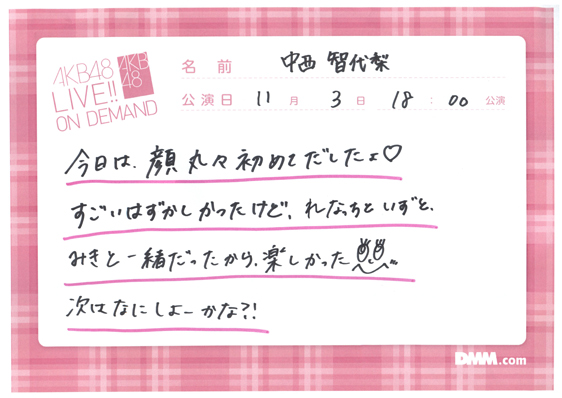 AKB48
LIVE!!
ON DEMAND
AKB
48
名前 中西 智代梨
公演日 11月 3日 18:00公演
今日は、顔丸々初めてだしたよ♡
すごいはずかしかったけど、れなっちといずと、
みきと一緒だったから、楽しかった
次はなにしよーかな?!
DMM.com